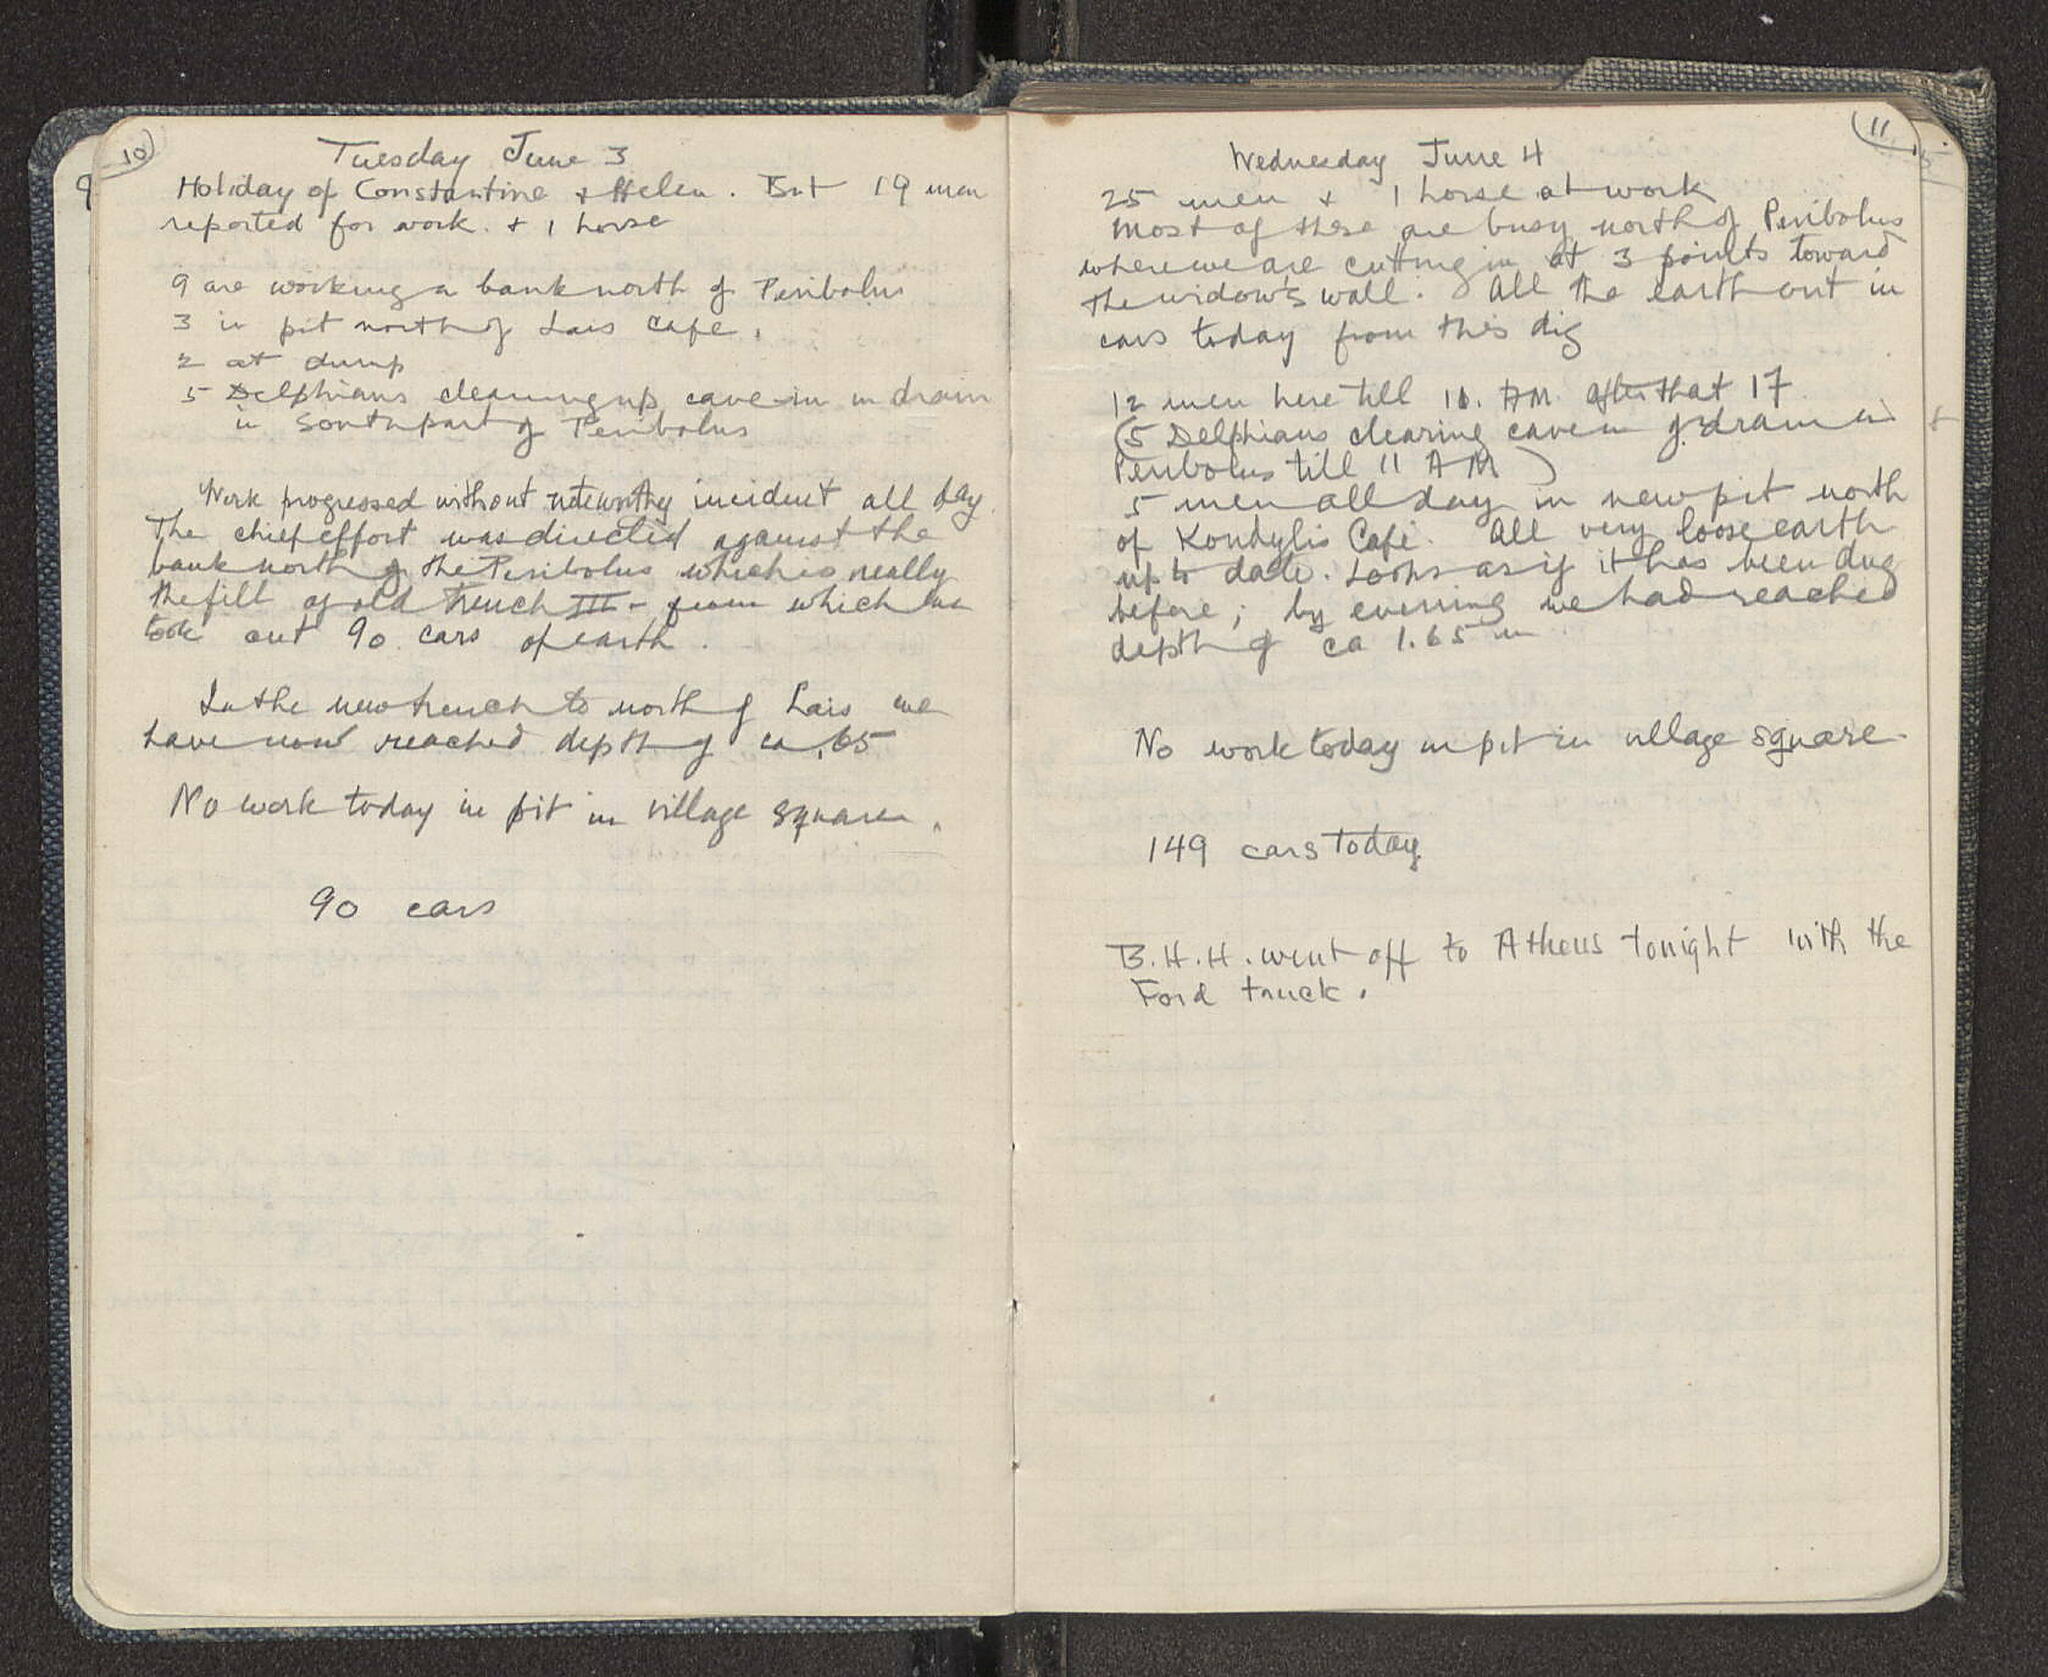 10
Tuesday June 3
Holiday of Constantine + Helen. But 19 men
reported for work. + 1 horse
9 are working a bank north of Peribolus
3 in pit north of Lais Cafe.
2 at dump
5 Delphians cleaning up cave-in in drain
in South part of Peribolus
Work progressed without noteworthy incident all day.
The chief effort was directed against the
bank north of the Peribolus which is really
the fill of old trench III - from which we
took out 90 cars of earth.
In the new trench to north of Lais we
have now reached depth of ca .65
No work today in pit in village square.
90 cars
9
11
Wednesday June 4
25 men + 1 horse at work
Most of these are busy north of Peribolus
where we are cutting in at 3 points toward
the widow's wall. All the earth out in
cars today from this dig
12 men here till 11. AM. after that 17
(5 Delphians clearing cave in of drain in
Peribolus till 11 AM)
5 men all day in new pit north
of Kondylis Café. All very loose earth
up to date. Looks as if it has been dug
before; by evening we had reached
depth of ca 1.65 m
No work today in pit in village square.
149 cars today
B.H.H. went off to Athens tonight with the
Ford truck.